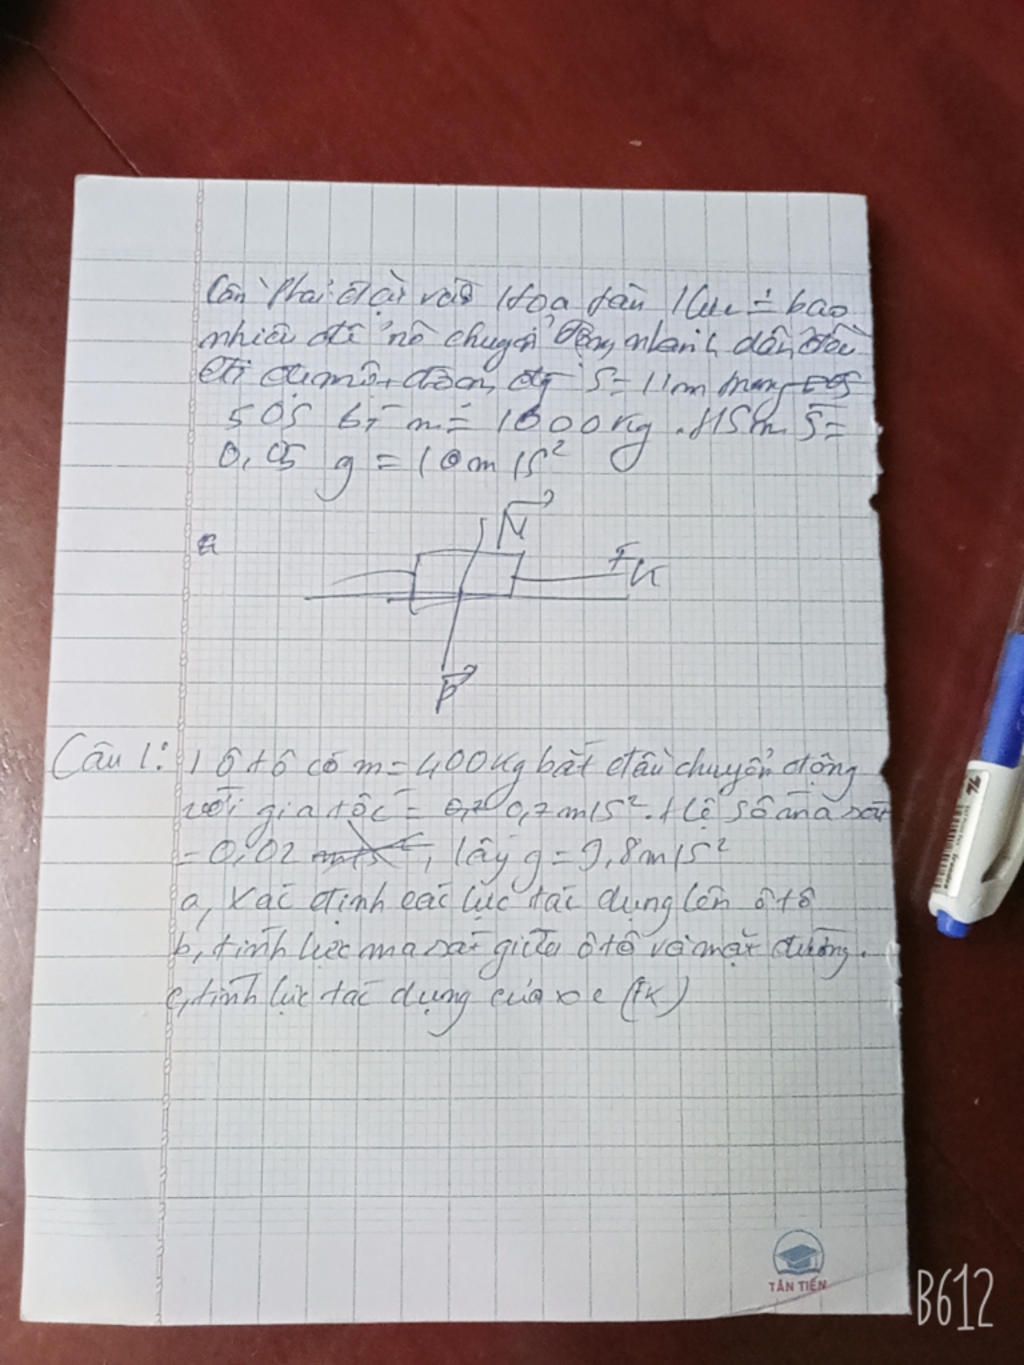 Cần phải đặt vào 1 toa tàu 1 lực = bao
nhiêu để nó chuyển động nhanh dần đều
đi được đoạn đg S = 11m trong
50s bt m = 1000kg. HSms =
0,05 g = 10m/s²
N
FK
P
Câu 1: 1 ô tô có m = 400kg bắt đầu chuyển động
với gia tốc = 0,7m/s². Hệ số ma sát
= 0,02, lấy g = 9,8m/s²
a, Xác định các lực tác dụng lên ô tô
b, tính lực ma sát giữa ô tô và mặt đường.
c, tính lực tác dụng của xe (fK)
TÂN TIẾN
B612